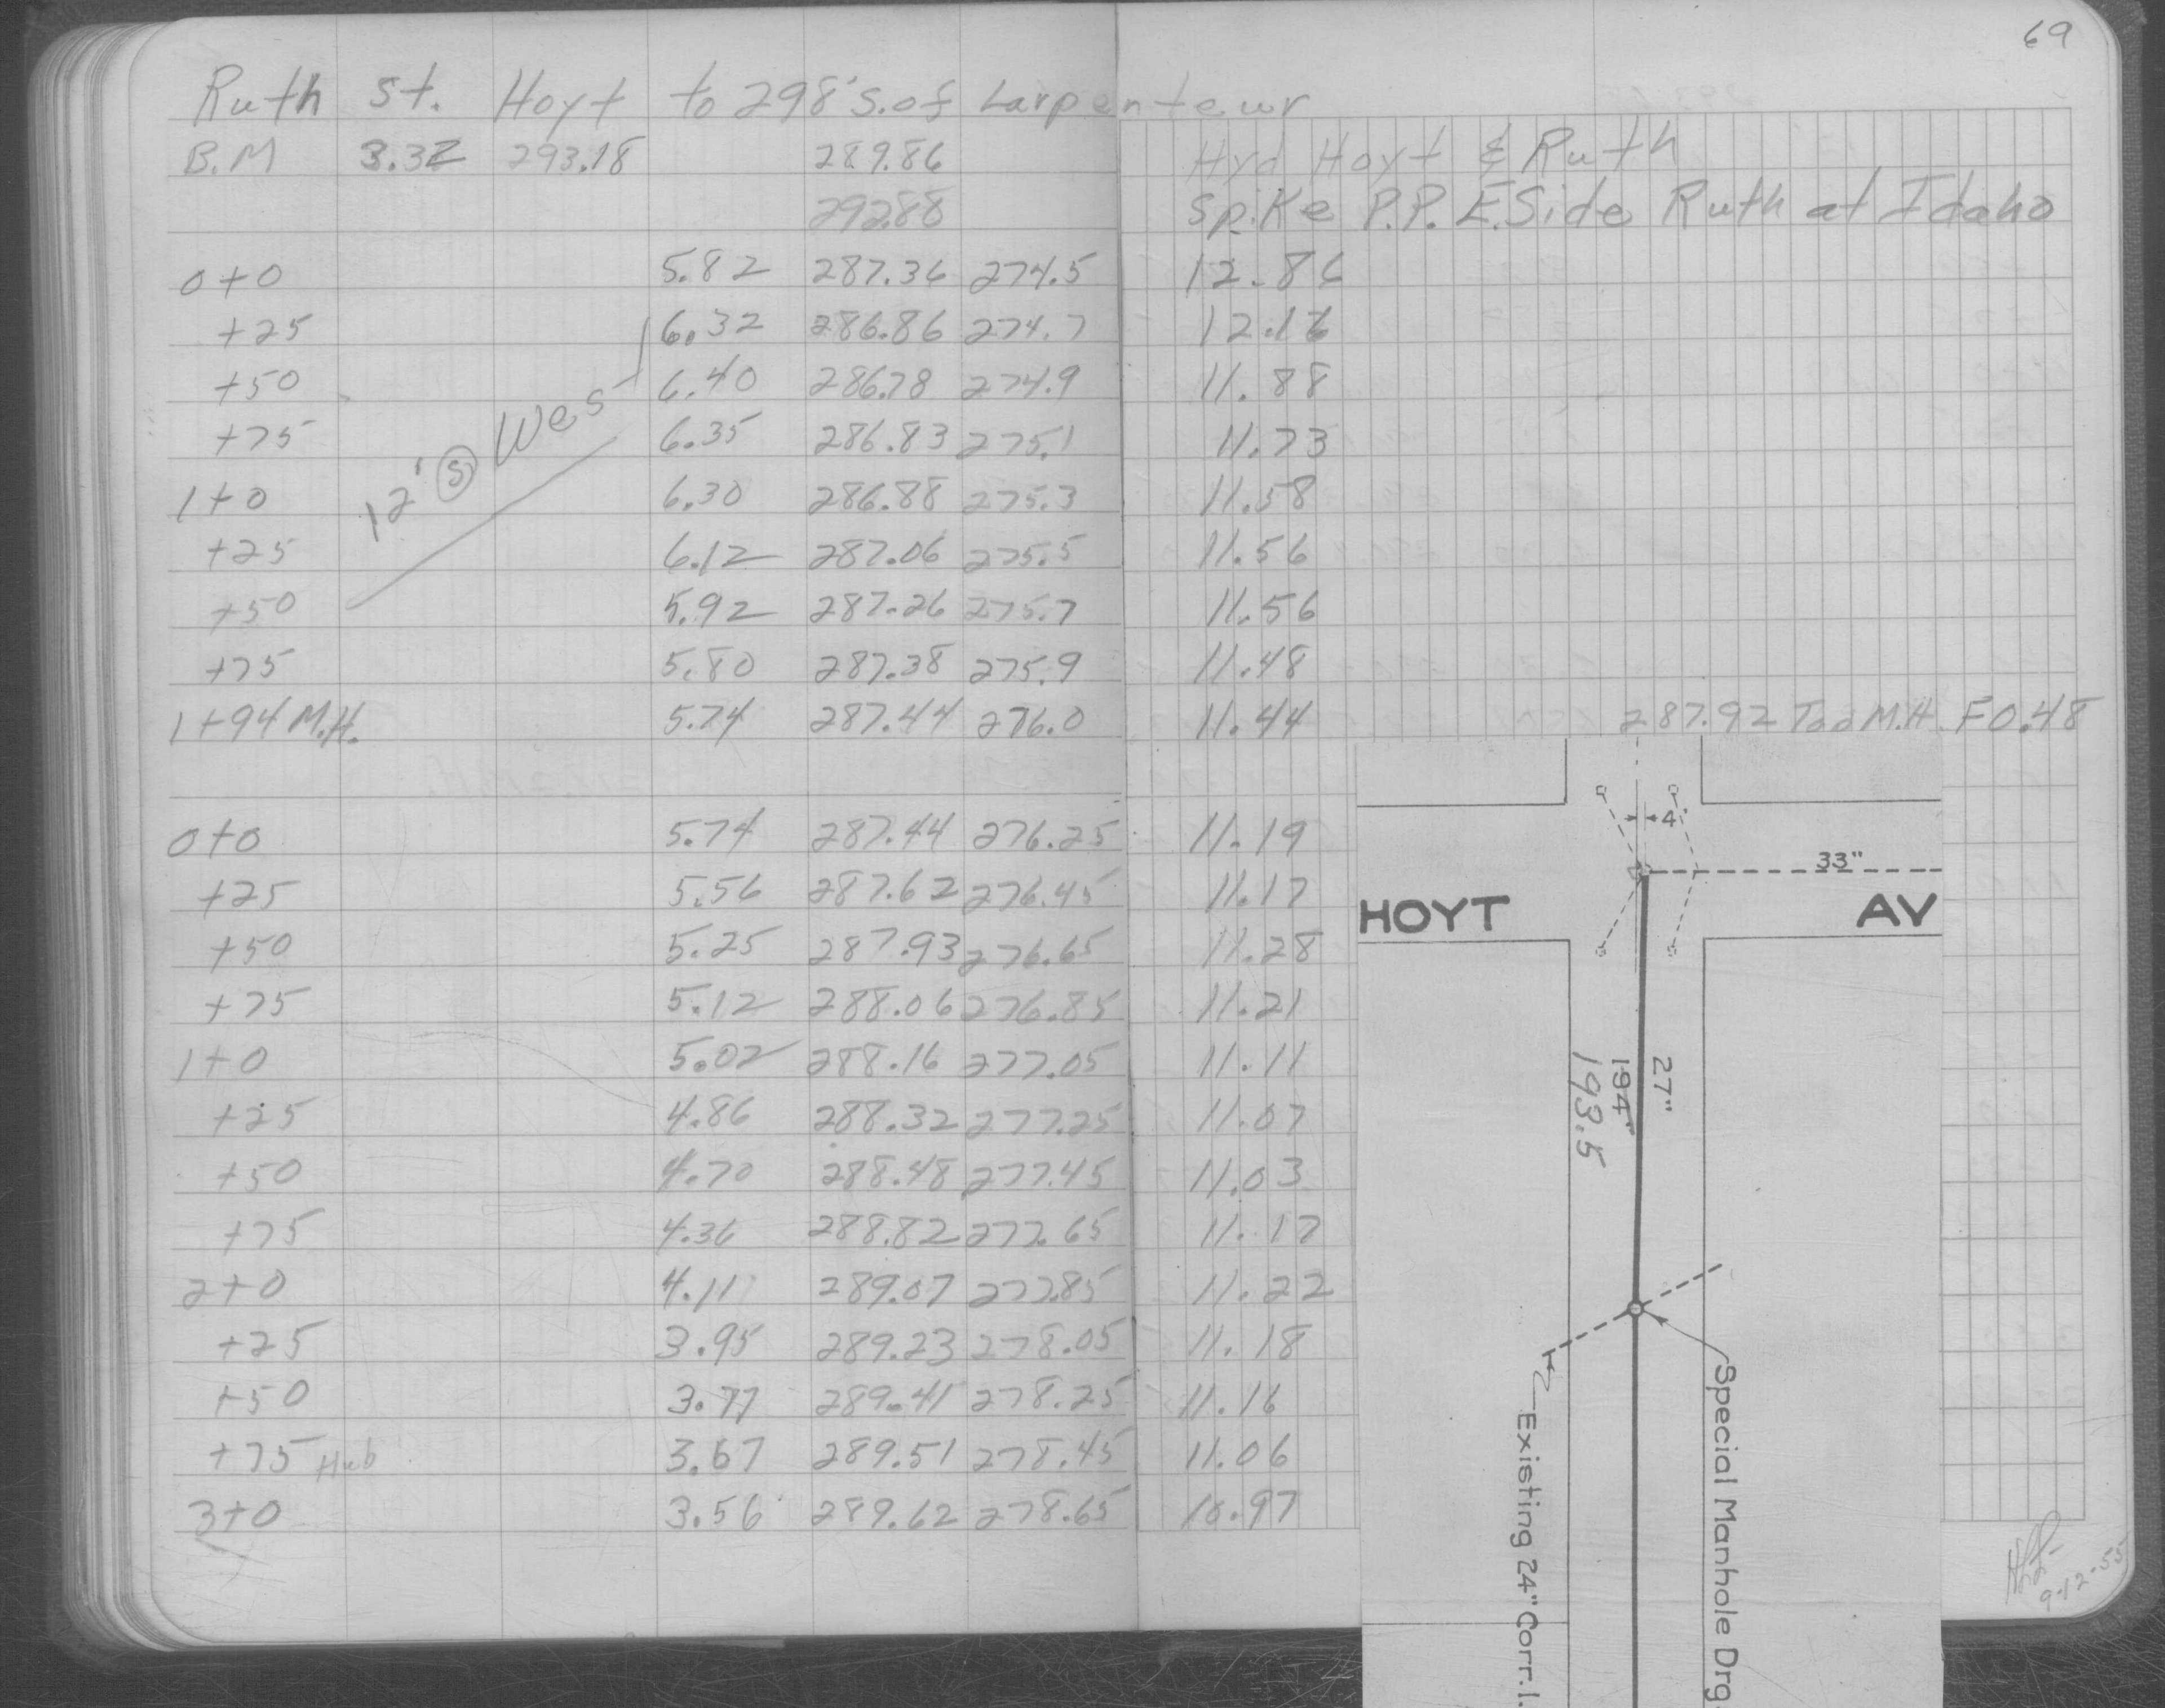 69
Ruth St. Hoyt to 298' S. of Larpenteur
B.M 3.32 293.18 289.86 Hyd Hoyt & Ruth
292.88 Spike P.P. E. Side Ruth at Idaho
0+0 5.82 287.36 274.5 12.86
+25 6.32 286.86 274.7 12.16
+50 6.40 286.78 274.9 11.88
+75 6.35 286.83 275.1 11.73
12' (S) West
1+0 6.30 286.88 275.3 11.58
+25 6.12 287.06 275.5 11.56
+50 5.92 287.26 275.7 11.56
+75 5.80 287.38 275.9 11.48
1+94 M.H. 5.74 287.44 276.0 11.44 287.92 Top M.H. F 0.48
0+0 5.74 287.44 276.25 11.19
+25 5.56 287.62 276.45 11.17
+50 5.25 287.93 276.65 11.28
+75 5.12 288.06 276.85 11.21
1+0 5.02 288.16 277.05 11.11
+25 4.86 288.32 277.25 11.07
+50 4.70 288.48 277.45 11.03
+75 4.36 288.82 277.65 11.17
2+0 4.11 289.07 277.85 11.22
+25 3.95 289.23 278.05 11.18
+50 3.77 289.41 278.25 11.16
+75 Hub 3.67 289.51 278.45 11.06
3+0 3.56 289.62 278.65 10.97
4'
33"
HOYT AV
27"
194'
193.5
Special Manhole Drg.
Existing 24" Corr. I.
9-12-55